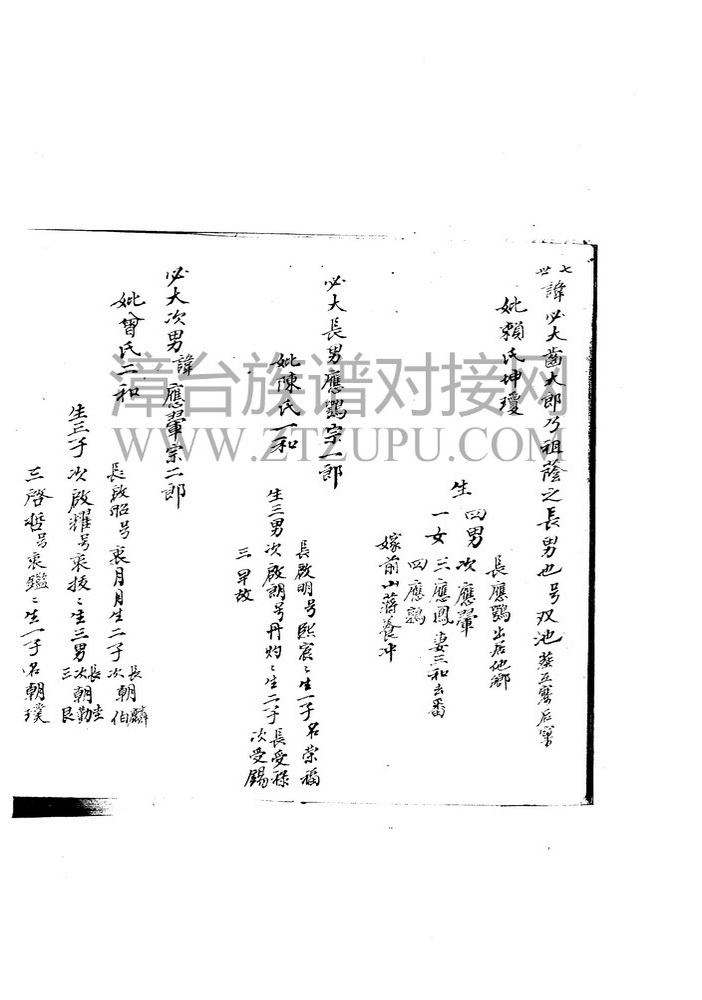 七世 諱必大齒大郎乃祖蔭之長男也号双池葬五寮后寮
妣賴氏坤瓊
長應鸚出居他鄉
生四男次應翬
一女三應鳳妻三和去番
四應鶚
嫁前山蔣養冲
必大長男應鸚宗一郎
妣陳氏一和
長啟明号熙宸〻生一子名榮福
生三男次啟朗号丹灼〻生二子長受祿
次受錫
三早故
必大次男諱應翬宗二郎
妣曾氏二和
長啟昭号衷月月生二子長朝麟
次朝伯
生三子次啟耀号衷掞〻生三男長奎
次朝勤
三艮
三啓哲号衷鑑〻生一子名朝璞
漳台族谱对接网
WWW.ZTZUPU.COM